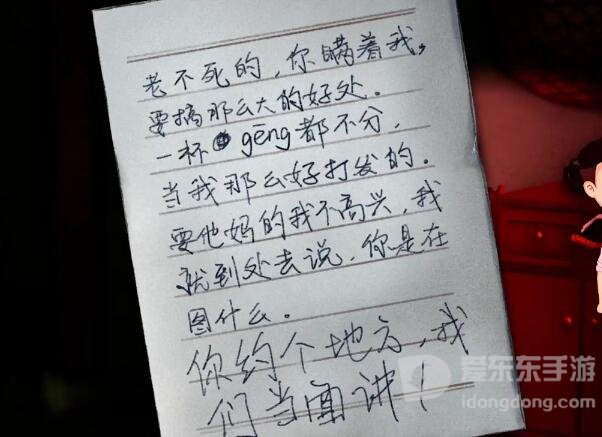 老不死的，你瞒着我，
要搞那么大的好处。
一杯gēng都不分，
当我那么好打发的。
要他妈的我不高兴，我
就到处去说，你是在
图什么。
你约个地方，我
们当面讲！
爱东东手游
idongdong.com